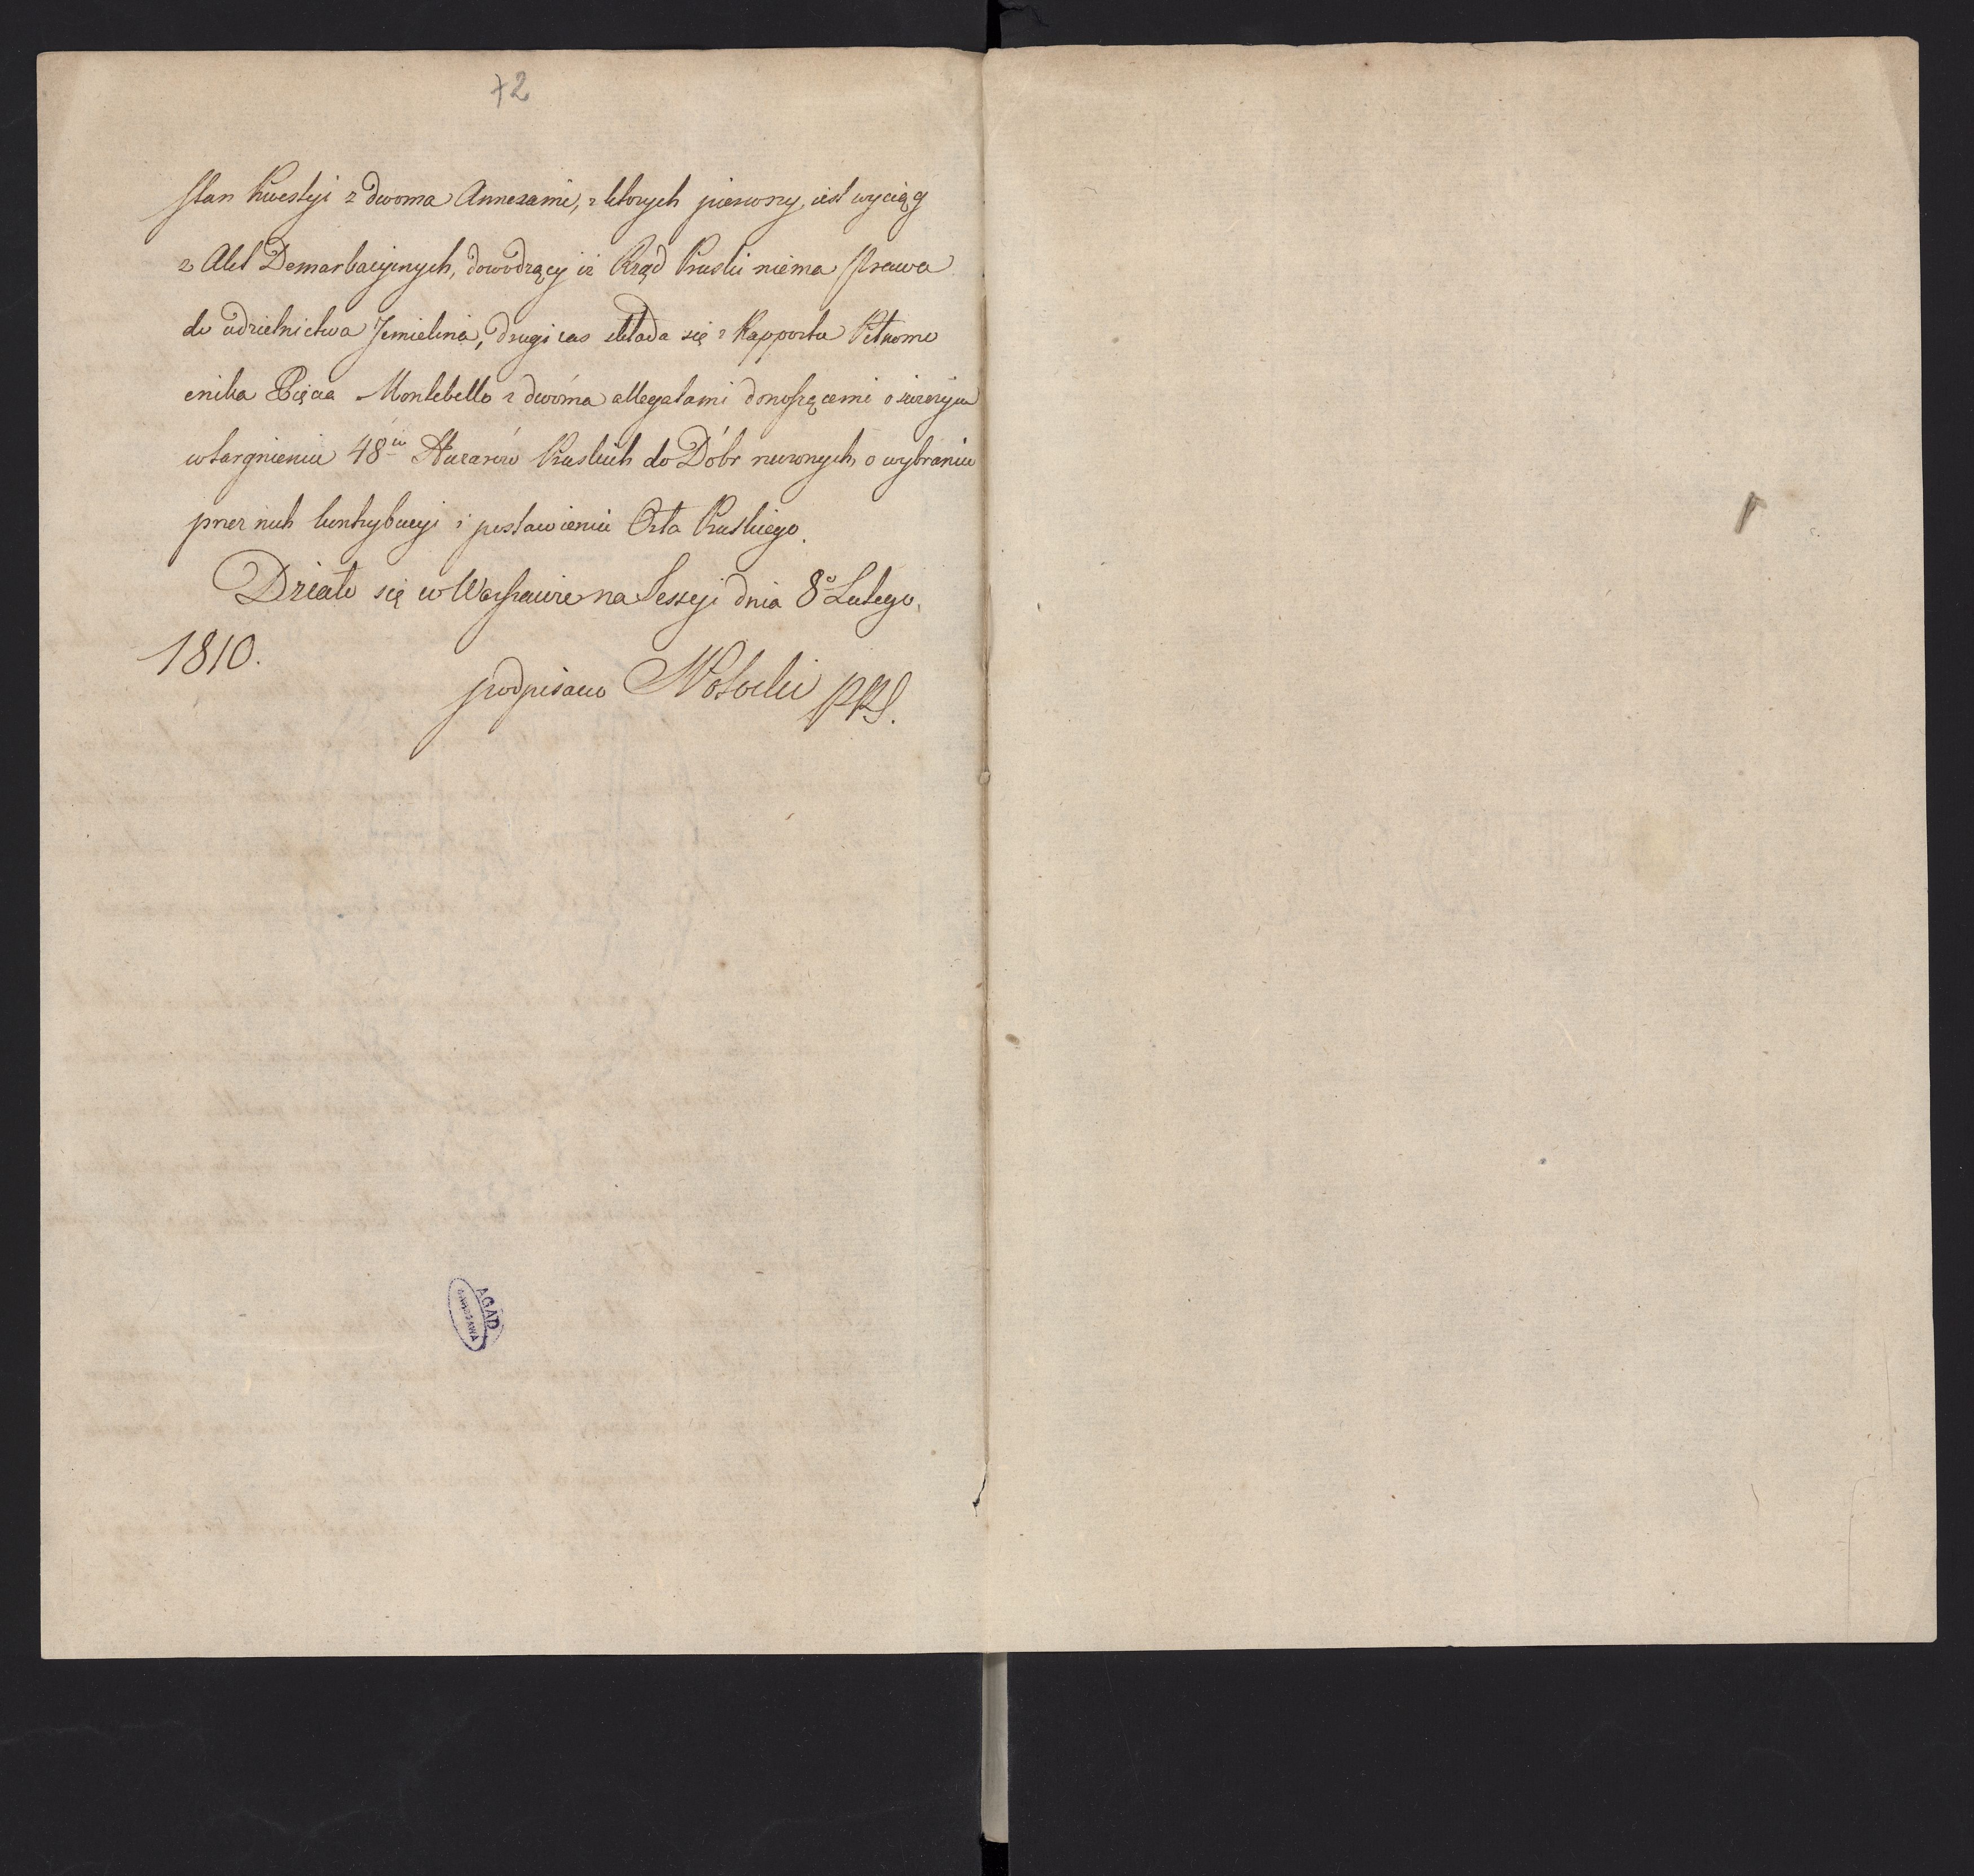 72
stan kwestyi z dwoma Annexami, z ktorych pierwszy, iest wyciąg
z Akt Demarkacyinych, dowodzący iż Rząd Pruski niema Prawa
do udzielnictwa Jemielina, drugi zas składa się z Rapportu Pełnomo
cnika Xięcia Montebello z dwóma allegatami donoszącemi o
wtargnieniu 48iu Huzarów Pruskich do Dóbr rzeczonych, o wybraniu
przez nich kontrybucyi i postawieniu Orła Pruskiego.
Działo się w Warszawie na Sessyi dnia 8o Lutego
1810.
podpisano Potocki PRS.
AGAD
WARSZAWA